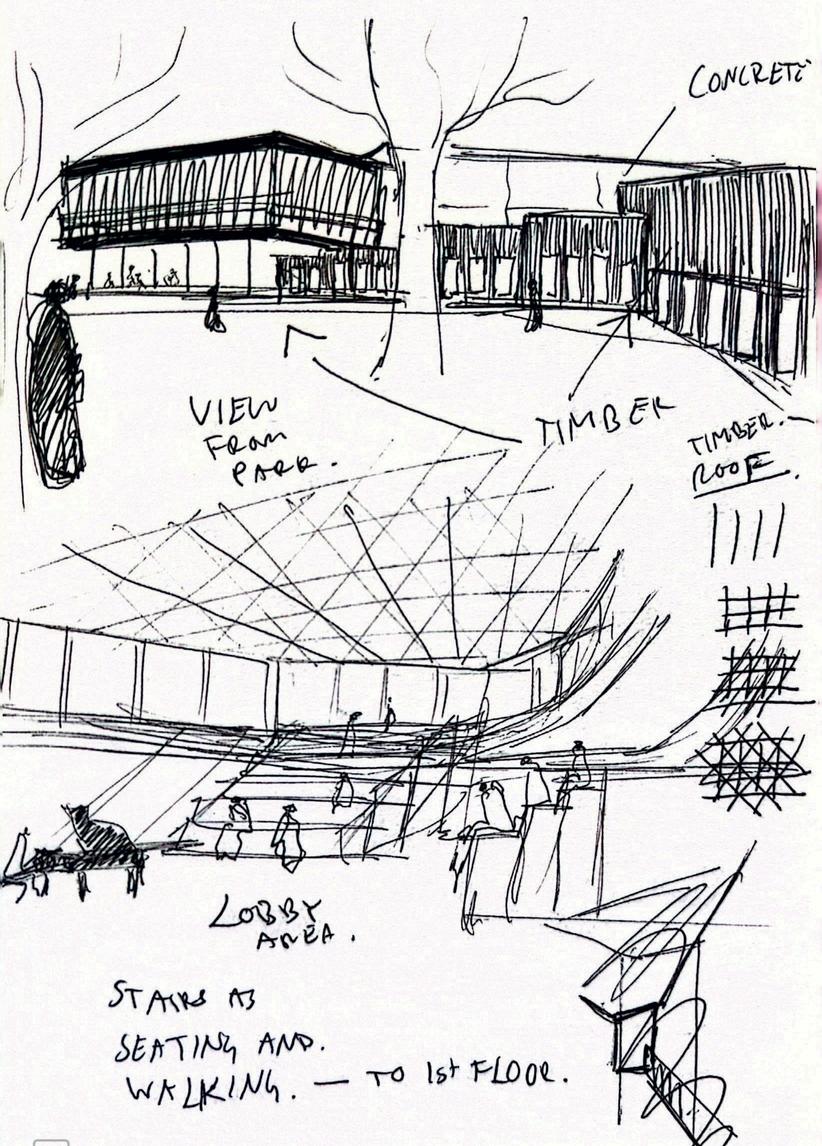 CONCRETE
VIEW
FROM
PARK.
TIMBER
TIMBER.
ROOF.
LOBBY
AREA.
STAIRS AS
SEATING AND.
WALKING. — TO 1st FLOOR.